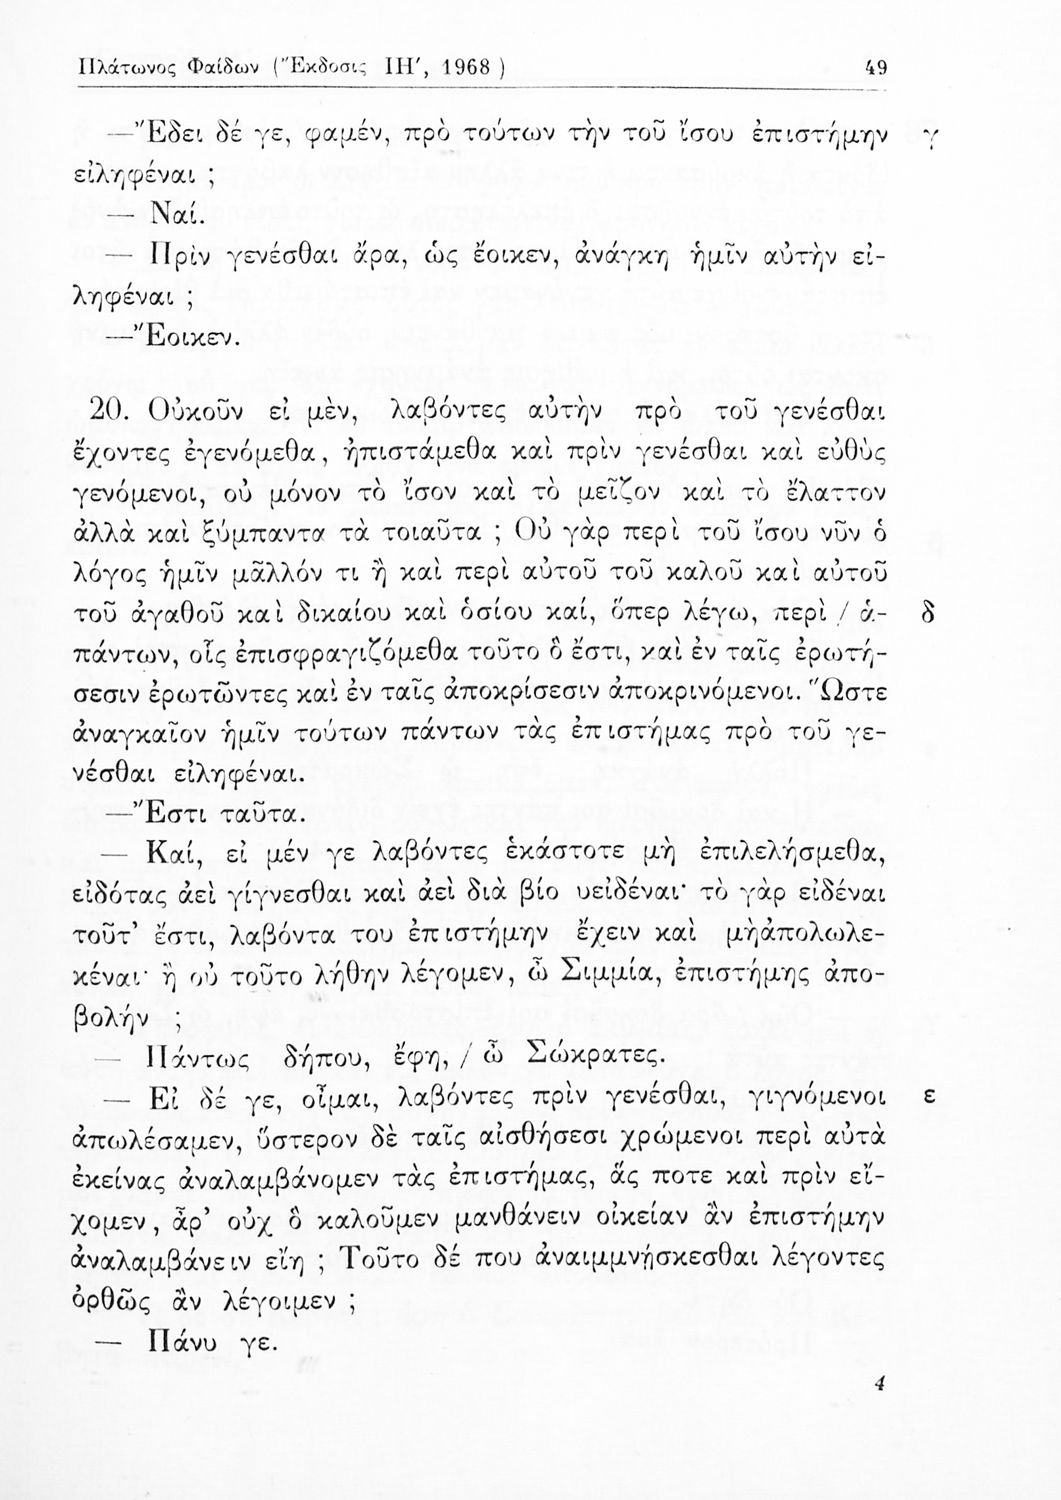 Πλάτωνος Φαίδων (Ἔκδοσις ΙΗ', 1968 ) 49
—Ἔδει δέ γε, φαμέν, πρὸ τούτων τὴν τοῦ ἴσου ἐπιστήμην γ
εἰληφέναι ;
— Ναί.
— Πρὶν γενέσθαι ἄρα, ὡς ἔοικεν, ἀνάγκη ἡμῖν αὐτὴν εἰ-
ληφέναι ;
—Ἔοικεν.
20. Οὐκοῦν εἰ μὲν, λαβόντες αὐτὴν πρὸ τοῦ γενέσθαι
ἔχοντες ἐγενόμεθα, ἠπιστάμεθα καὶ πρὶν γενέσθαι καὶ εὐθὺς
γενόμενοι, οὐ μόνον τὸ ἴσον καὶ τὸ μεῖζον καὶ τὸ ἔλαττον
ἀλλὰ καὶ ξύμπαντα τὰ τοιαῦτα ; Οὐ γὰρ περὶ τοῦ ἴσου νῦν ὁ
λόγος ἡμῖν μᾶλλόν τι ἢ καὶ περὶ αὐτοῦ τοῦ καλοῦ καὶ αὐτοῦ
τοῦ ἀγαθοῦ καὶ δικαίου καὶ ὁσίου καί, ὅπερ λέγω, περὶ / ἁ- δ
πάντων, οἷς ἐπισφραγιζόμεθα τοῦτο ὃ ἔστι, καὶ ἐν ταῖς ἐρωτή-
σεσιν ἐρωτῶντες καὶ ἐν ταῖς ἀποκρίσεσιν ἀποκρινόμενοι. Ὥστε
ἀναγκαῖον ἡμῖν τούτων πάντων τὰς ἐπιστήμας πρὸ τοῦ γε-
νέσθαι εἰληφέναι.
—Ἔστι ταῦτα.
— Καί, εἰ μέν γε λαβόντες ἑκάστοτε μὴ ἐπιλελήσμεθα,
εἰδότας ἀεὶ γίγνεσθαι καὶ ἀεὶ διὰ βίο υεἰδέναι· τὸ γὰρ εἰδέναι
τοῦτ' ἔστι, λαβόντα του ἐπιστήμην ἔχειν καὶ μὴἀπολωλε-
κέναι· ἢ οὐ τοῦτο λήθην λέγομεν, ὦ Σιμμία, ἐπιστήμης ἀπο-
βολήν ;
— Πάντως δήπου, ἔφη, / ὦ Σώκρατες.
— Εἰ δέ γε, οἶμαι, λαβόντες πρὶν γενέσθαι, γιγνόμενοι ε
ἀπωλέσαμεν, ὕστερον δὲ ταῖς αἰσθήσεσι χρώμενοι περὶ αὐτὰ
ἐκείνας ἀναλαμβάνομεν τὰς ἐπιστήμας, ἅς ποτε καὶ πρὶν εἴ-
χομεν, ἆρ' οὐχ ὃ καλοῦμεν μανθάνειν οἰκείαν ἂν ἐπιστήμην
ἀναλαμβάνειν εἴη ; Τοῦτο δέ που ἀναιμμνῄσκεσθαι λέγοντες
ὀρθῶς ἂν λέγοιμεν ;
— Πάνυ γε.
4